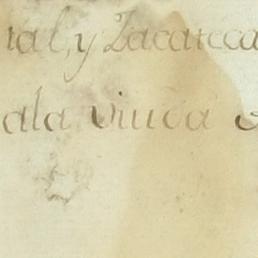 ral, y Zacateca
ala viuda